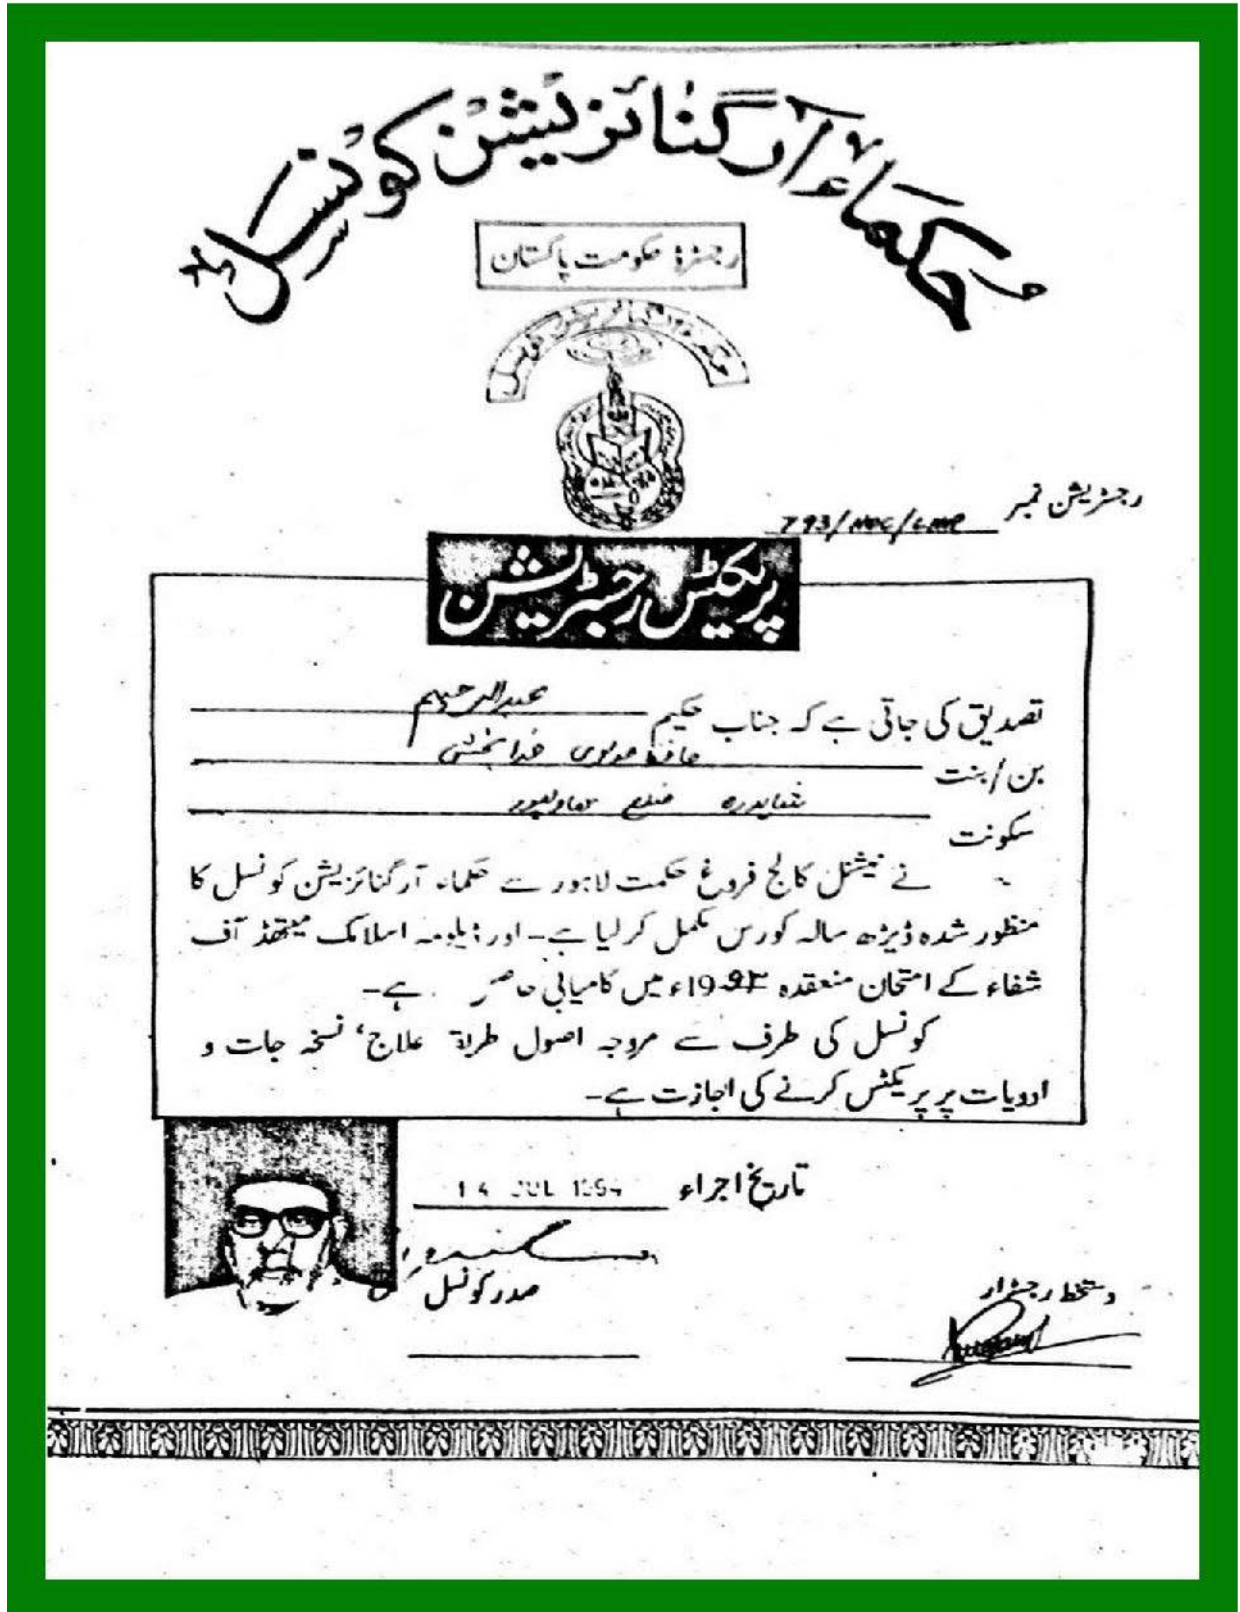 حکماء آرگنائزیشن کونسل
رجسٹرڈ حکومت پاکستان
رجسٹریشن نمبر 793/NOC/LMP
پریکٹس رجسٹریشن
تصدیق کی جاتی ہے کہ جناب حکیم عبدالرحیم
بن/بنت حافظ مولوی خدا بخش
سکونت ضلع بہاولپور
نے نیشنل کالج فروغ حکمت لاہور سے حکماء آرگنائزیشن کونسل کا
منظور شدہ ڈیڑھ سالہ کورس مکمل کر لیا ہے۔ اور ڈپلومہ اسلامک میتھڈ آف
شفاء کے امتحان منعقدہ 19ء میں کامیابی حاصل ہے۔
کونسل کی طرف سے مروجہ اصول طریقہ علاج، نسخہ جات و
ادویات پر پریکٹس کرنے کی اجازت ہے۔
تاریخ اجراء 14 JUL 1994
صدر کونسل
دستخط رجسٹرار